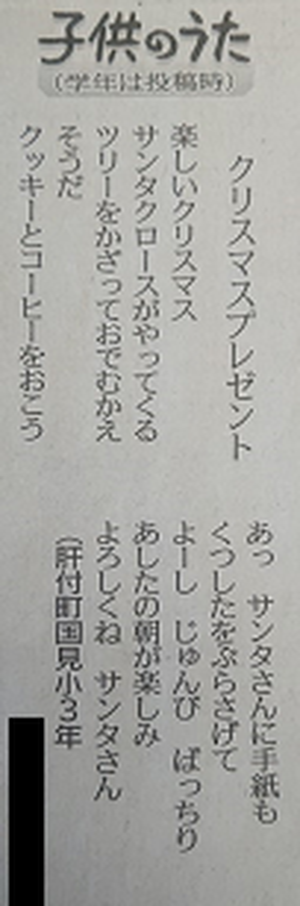 子供のうた
(学年は投稿時)
クリスマスプレゼント
楽しいクリスマス
サンタクロースがやってくる
ツリーをかざっておでむかえ
そうだ
クッキーとコーヒーをおこう
あっ　サンタさんに手紙も
くつしたをぶらさげて
よーし　じゅんび　ばっちり
あしたの朝が楽しみ
よろしくね　サンタさん
(肝付町国見小3年